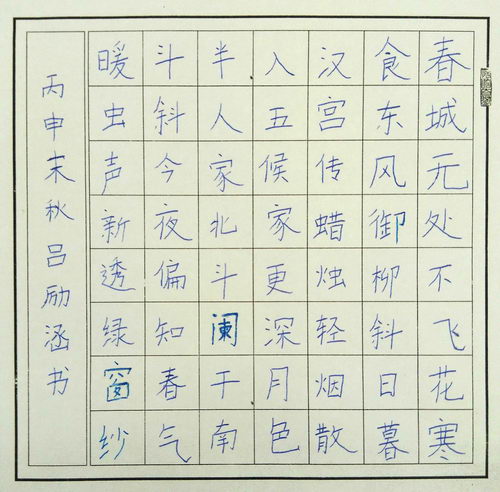 春城无处不飞花寒
食东风御柳斜日暮
汉宫传蜡烛轻烟散
入五候家更深月色
半人家北斗阑干南
斗斜今夜偏知春气
暖虫声新透绿窗纱
丙申末秋吕励涵书